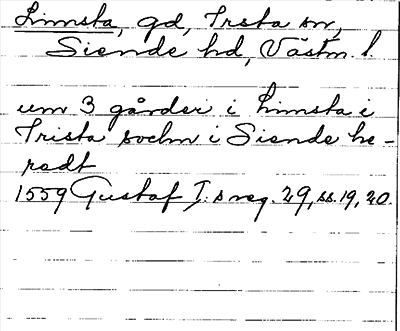 Limsta, gd, Irsta sn,
Siende hd, Västm. l.
um 3 gårder i Limsta i
Irista sochn i Siende he-
redt
1559 Gustaf I:s reg. 29, ss. 19, 20.